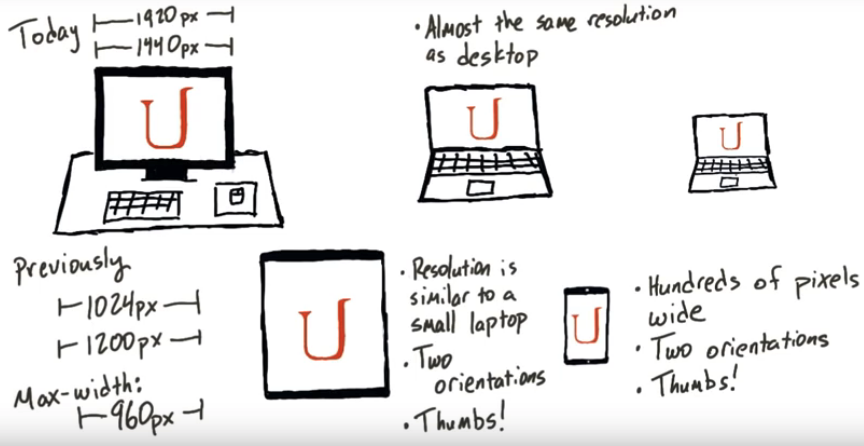 Today
1920px
1440px
U
• Almost the same resolution
as desktop
U
U
Previously
1024px
1200px
Max-width:
960px
U
• Resolution is
similar to a
small laptop
• Two
orientations
• Thumbs!
U
• Hundreds of pixels
wide
• Two orientations
• Thumbs!